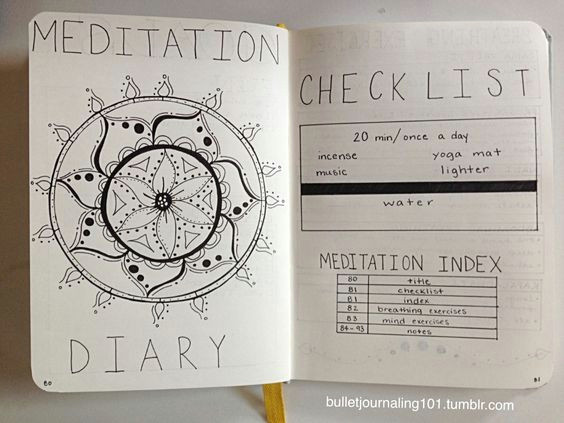 MEDITATION
DIARY
80
CHECKLIST
20 min/once a day
incense yoga mat
music lighter
water
MEDITATION INDEX
80 title
81 checklist
81 index
82 breathing exercises
83 mind exercises
84-93 notes
81
bulletjournaling101.tumblr.com